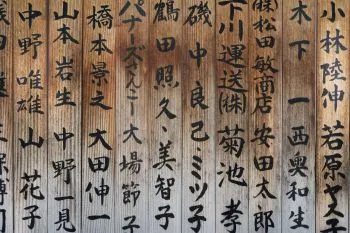 小林陸伸 若原ヤス子
木下 一 西奥和生
㈱松田敏商店 安田太郎
下川運送㈱ 菊池 孝
磯中良己・ミツ子
鶴田照久・美智子
パナーズさんこー 大場節子
橋本景之 大田伸一
山本岩生 中野一見
中野唯雄 山 花子